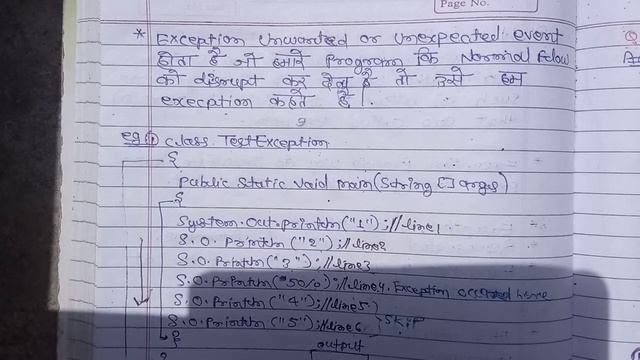 Page No.
* Exception Unwanted or Unexpected event
होता है जो हमारे Program कि Normal Folow
को disrupt कर देता है तो उसे हम
execption कहते है।
eg ① class TestException
{
public static void main(String [] args)
{
System.out.println("1");//line1
S.O.Println("2");//line2
S.O.Println("3");//line3
S.O.Println("50/0);//line4.Exception occured here
S.O.Println("4");//line5
S.O.Println("5");//line6 }Skip
}
output